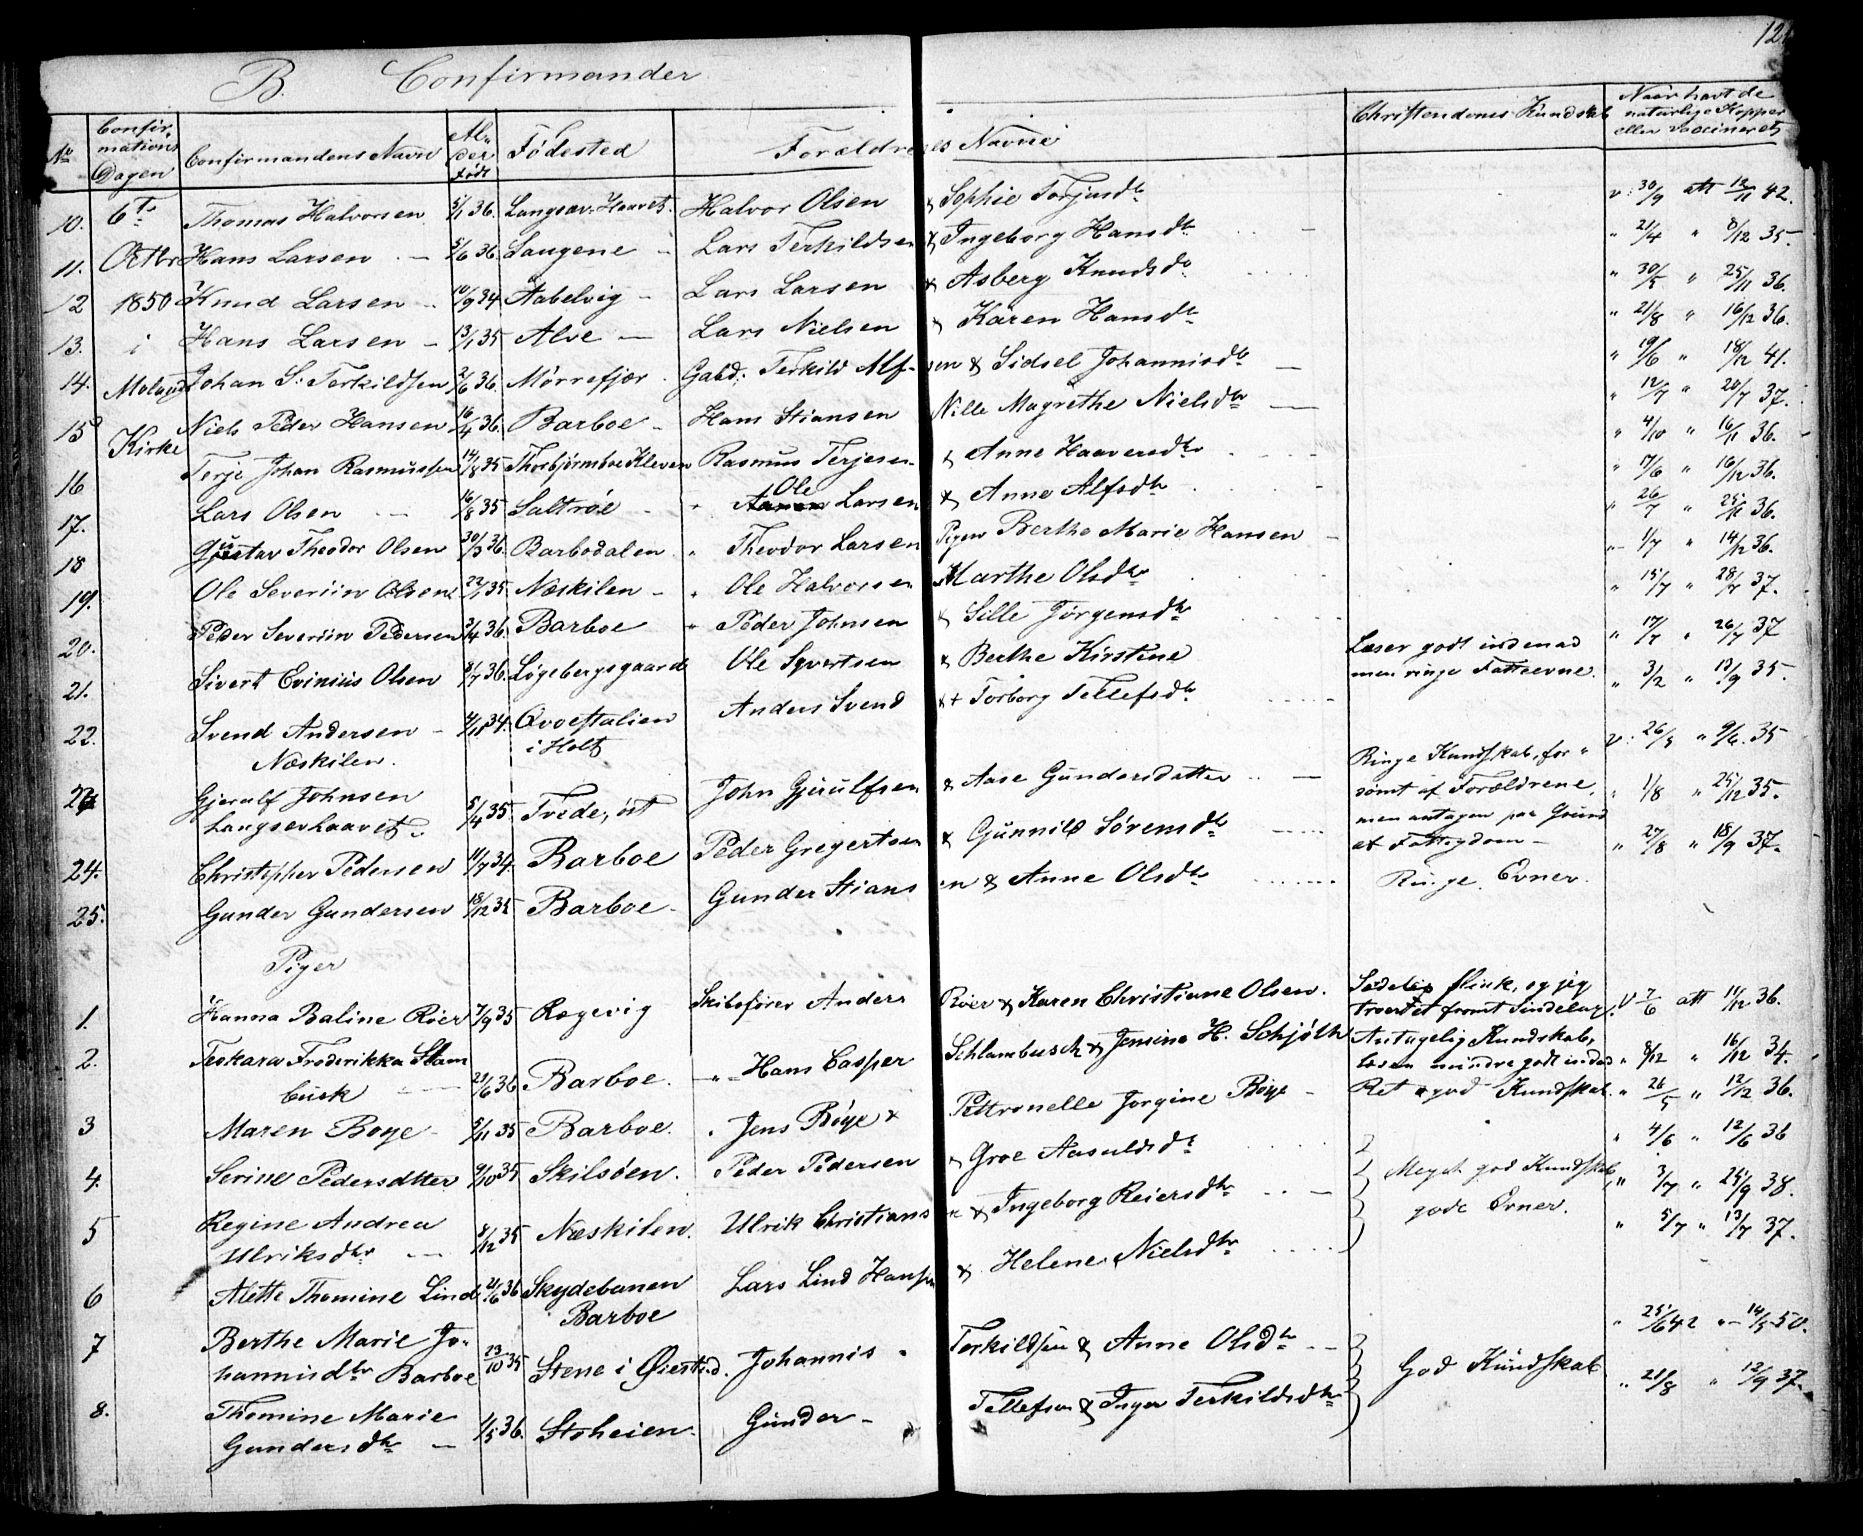 12
B. Confirmander
No Confirmations Dagen Confirmandens Navn Alder Født Fødested Forældrenes Navne Christendoms Kundskab Naar havt de naturlige Kopper eller vaccineret
10. 6te Thomas Halvorsen 5/1 36. Langsæv. Haavet. Halvor Olsen & Sophie Torjusdtr v: 30/9 att 12/11 42.
11. Octbr Hans Larsen 5/6 36 Laugene Lars Terkildsen & Ingeborg Hansdtr " 21/4 " 8/12 35.
12 1850 Knud Larsen 10/9 34 Aabelvig Lars Larsen & Asberg Knudsdr " 30/5 " 25/11 36.
13. i Hans Larsen 13/1 35 Alve Lars Nielsen & Karen Hansdtr " 21/8 " 16/12 36.
14. Moland Johan S: Terkildsen 2/6 36. Mørrefjær Gabd: Terkild Alfsen & Sidsel Johannisdtr " 19/6 " 18/12 41.
15 Kirke Niels Peder Hansen 16/4 36. Barboe Hans Stiansen Nille Magrethe Nielsdtr " 12/7 " 20/7 37.
16 Terje Johan Rasmussen 14/8 35 Thorbjørnsboe Kleven Rasmus Terjesen & Anne Haaversdtr " 4/10 " 16/11 36.
17. Lars Olsen 16/8 35 Saltrøe " Ole Larsen & Anne Alfsdtr " 17/6 " 16/12 36.
18 Gustav Theodor Olsen 30/3 36. Barbodalen " Theodor Larsen Pigen Berthe Marie Hansen " 26/7 " 25/11 36.
19. Ole Severiin Olsen 22/1 35 Næskilen " Ole Halvorsen Marthe Olsdtr " 1/7 " 14/12 36.
20. Peder Severiin Pedersen 3/4 36. Barboe " Peder Johnsen & Sille Jørgensdtr " 15/7 " 28/7 37.
21. Sivert Evinius Olsen 8/7 36. Løgebergsgaard Ole Syvertsen & Berthe Kirstine Læser godt indenad " 17/7 " 26/7 37
men ringe Fatteevne.
22. Svend Andersen 4/11 34. Qvoestalien Anders Svend & Torborg Tellefsdtr " 3/2 " 13/9 35.
Næskilen. i Holt
Gjerulf Johnsen 5/4 35. Tvede, øst John Gjerulfsen & Aase Gundersdatter Ringe Kundskab, for- v: 26/5 " 9/6. 35
Langsævhaavet. sømt af Forældrene,
men antagen paa Grund
af Fattigdom
24. Christopher Pedersen 11/7 34. Barboe Peder Gregertsen & Gunnild Sørensdtr " 1/8 " 25/12 35.
25. Gunder Gundersen 18/12 35 Barboe Gunder Stiansen & Anne Olsdtr Ringe Evner. " 27/8 " 18/9 37.
Piger
1. Hanna Baline Röer 7/9 35 Rægevig Skibsfører Anders Röer & Karen Christiane Olsen. Sædelig flink, og jeg V 7/6 att 11/12 36.
troer et fromt Sindelag.
2. Teskara Frederikka Slam 21/6 36 Barboe. " Hans Casper Schlambusch & Jensine H. Schjøth Antagelig Kundskab, " 8/12 " 16/12 34.
busk læsen mindre godt indad
3 Maren Boye 5/11 35 Barboe. " Jens Böye & Pettronelle Jorgine Böye Ret god Kundskab. " 26/5 " 12/12 36.
4. Serine Pedersdtter 9/10 35 Skilsöen. Peder Pedersen & Groe Aasuldsdtr Meget god Kundskab, " 4/6 " 12/6 36
gode Evner.
5 Regine Andrea 8/12 35 Næskilen. Ulrik Christiansen & Ingeborg Reiersdtr " 3/7 " 25/9 38.
Ulriksdtr
6 Alette Thomine Lind 21/6 36 Skydebanen Lars Lind Hansen & Helene Nielsdtr " 5/7 " 13/7 37.
Barboe
7 Berthe Marie Jo- 23/10 35 Stene i Øiestad. Johannis Terkildsen & Anne Olsdtr God Kundskab " 25/6 42 " 14/5 50.
hannisdtr Barboe
8. Thomine Marie 1/5 36. Stoheien. Gunder Tellefsen & Inger Terkildsdtr " 21/8 " 12/9 37.
Gundersdtr